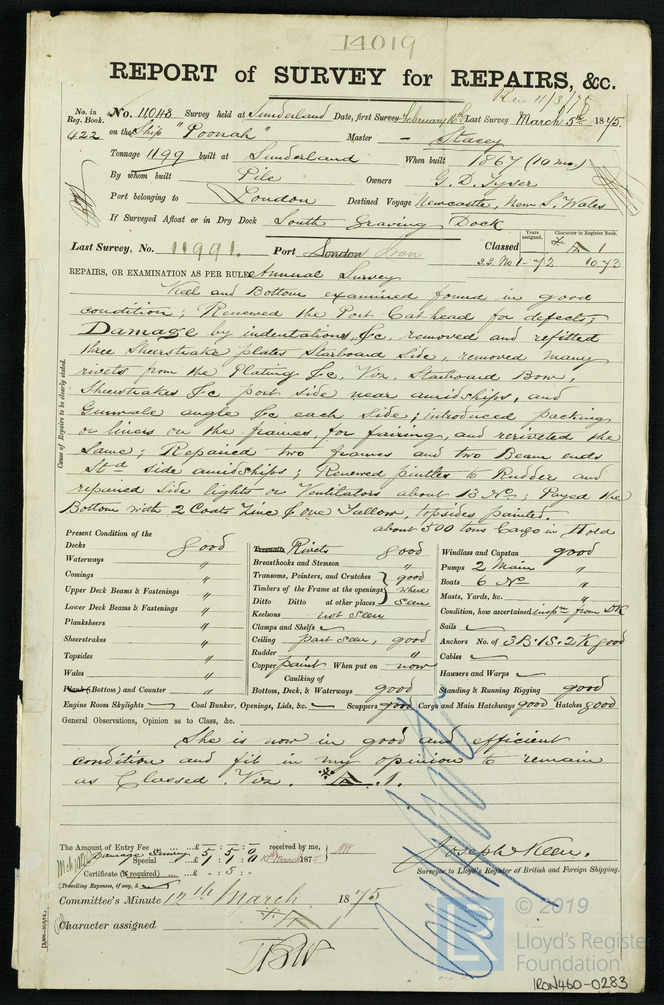 14019
REPORT of SURVEY for REPAIRS, &c.
Rec 11/3/75
No. in Reg. Book. No. 11048 Survey held at Sunderland Date, first Survey February 16th Last Survey March 5th 1875.
422 on the Ship "Poonah" Master - Stacey
Tonnage 1199 built at Sunderland When built 1867 (10 mo.)
By whom built Pile Owners G. D. Tyser
Port belonging to London Destined Voyage Newcastle, New S. Wales
If Surveyed Afloat or in Dry Dock South Graving Dock
Years assigned. Character in Register Book.
Last Survey, No. 11991. Port London Iron Classed A 1
S.S. No 1-72 10.73
REPAIRS, OR EXAMINATION AS PER RULE Annual Survey
Keel and Bottom examined found in good
condition; Renewed the Port Cathead for defects;
Damage by indentations, &c, removed and refitted
three Sheerstrake plates Starboard Side, removed many
rivets from the Plating &c, Viz, Starboard Bow,
Sheerstrakes &c port side near amidships, and
Gunwale angle &c each Side; introduced packing
or liners on the frames, for fairing, and reriveted the
Same; Repaired two frames and two Beam ends
Std side amidships; Renewed pintles to Rudder and
repaired Side lights or Ventilators about 13 No; Payed the
Bottom with 2 Coats Zinc & One Tallow, topsides painted.
about 500 tons Cargo in Hold
Cause of Repairs to be clearly stated.
Present Condition of the
Decks good
Waterways "
Comings "
Upper Deck Beams & Fastenings "
Lower Deck Beams & Fastenings "
Planksheers "
Sheerstrakes "
Topsides "
Wales "
Plank (Bottom) and Counter "
Treenails Rivets good
Breasthooks and Stemson "
Transoms, Pointers, and Crutches good
Timbers of the Frame at the openings where
Ditto Ditto at other places seen
Keelsons not seen
Clamps and Shelfs
Ceiling part seen, good
Rudder "
Copper paint When put on now
Caulking of
Bottom, Deck, & Waterways good
Windlass and Capstan good
Pumps 2 Main "
Boats 6 No "
Masts, Yards, &c. "
Condition, how ascertained inspn from DK
Sails
Anchors No. of 3B.1S.2K good
Cables
Hawsers and Warps
Standing & Running Rigging good
Engine Room Skylights Coal Bunker, Openings, Lids, &c. Scuppers good Cargo and Main Hatchways good Hatches good
General Observations, Opinion as to Class, &c.
She is now in good and efficient
condition and fit in my opinion to remain
as Classed. Viz. A. 1.
The Amount of Entry Fee ... £ : : received by me,
Damage Survey £ 5 : 5 : 0
Special ... £ 1 : 1 : 0 10th March 1875
Certificate (if required) ... - : 5 : -
(Travelling Expenses, if any, £
Joseph Keen.
Surveyor to Lloyd's Register of British and Foreign Shipping.
Committee's Minute 12th March 1875
Character assigned
© 2019
Lloyd's Register
Foundation
IRON460-0283